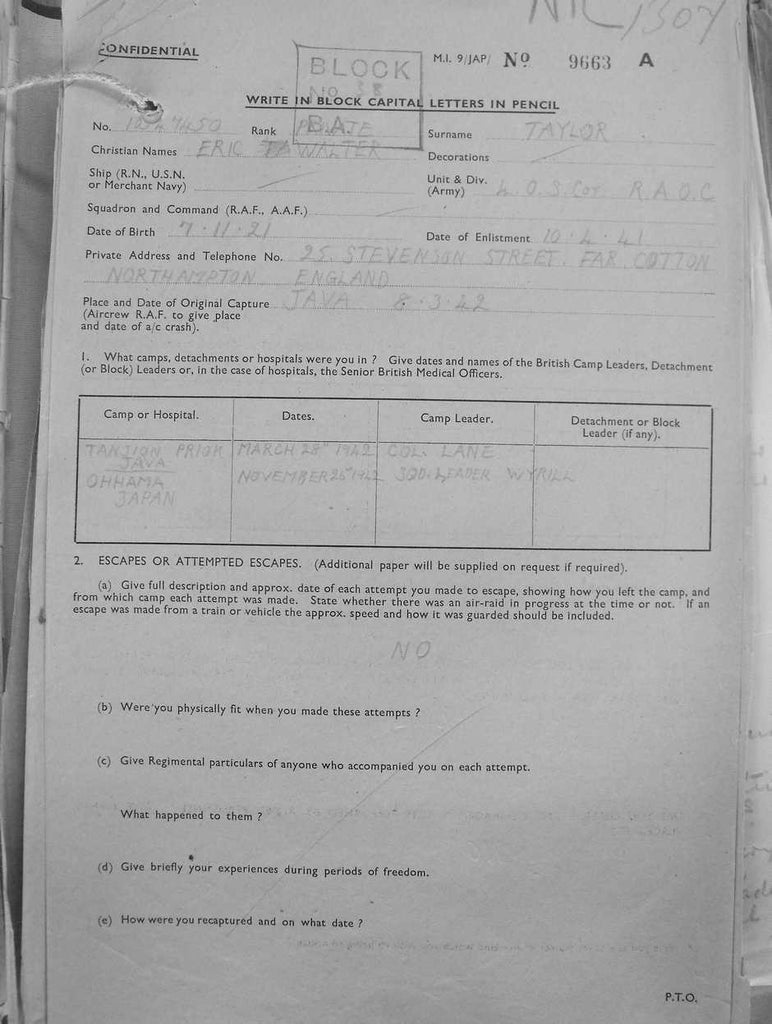 CONFIDENTIAL
BLOCK
M.I. 9/JAP/ No 9663 A
WRITE IN BLOCK CAPITAL LETTERS IN PENCIL
No. Rank PRIVATE Surname TAYLOR
Christian Names ERIC WALTER Decorations
Ship (R.N., U.S.N.
or Merchant Navy)
Unit & Div.
(Army) R.A.O.C
Squadron and Command (R.A.F., A.A.F.)
Date of Birth 7.11.21 Date of Enlistment 10.4.41
Private Address and Telephone No. 25 STEVENSON STREET. FAR COTTON
NORTHAMPTON ENGLAND
Place and Date of Original Capture JAVA 8.3.42
(Aircrew R.A.F. to give place
and date of a/c crash).
1. What camps, detachments or hospitals were you in ? Give dates and names of the British Camp Leaders, Detachment
(or Block) Leaders or, in the case of hospitals, the Senior British Medical Officers.
Camp or Hospital. Dates. Camp Leader. Detachment or Block
Leader (if any).
TANJION PRIOK MARCH 28 1942 COL. LANE
JAVA
OHHAMA NOVEMBER 26 1942 SQD. LEADER WYRILL
JAPAN
2. ESCAPES OR ATTEMPTED ESCAPES. (Additional paper will be supplied on request if required).
(a) Give full description and approx. date of each attempt you made to escape, showing how you left the camp, and
from which camp each attempt was made. State whether there was an air-raid in progress at the time or not. If an
escape was made from a train or vehicle the approx. speed and how it was guarded should be included.
NO
(b) Were you physically fit when you made these attempts ?
(c) Give Regimental particulars of anyone who accompanied you on each attempt.
What happened to them ?
(d) Give briefly your experiences during periods of freedom.
(e) How were you recaptured and on what date ?
P.T.O.